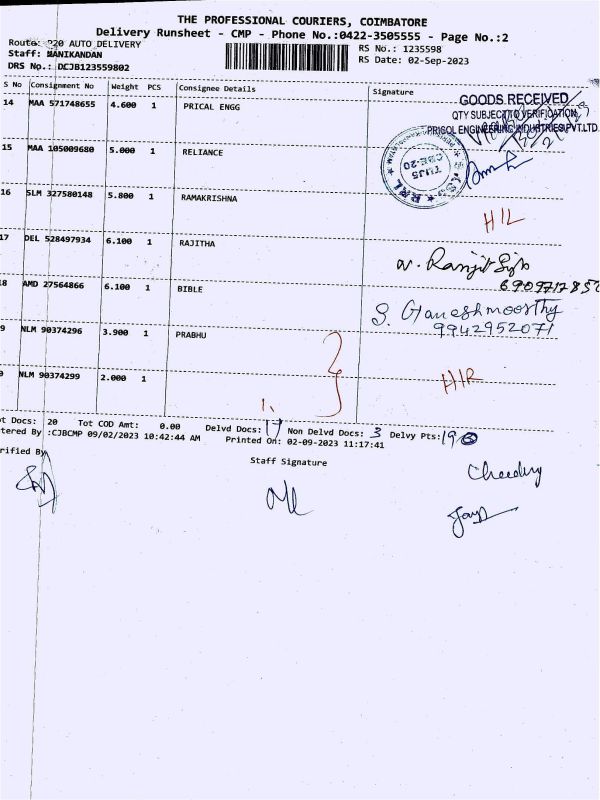 THE PROFESSIONAL COURIERS, COIMBATORE
Delivery Runsheet - CMP - Phone No.:0422-3505555 - Page No.:2
Route: 220 AUTO DELIVERY
Staff: MANIKANDAN
DRS No.: DCJB123559802
RS No.: 1235598
RS Date: 02-Sep-2023
S No Consignment No Weight PCS Consignee Details Signature
14 MAA 571748655 4.600 1 PRICAL ENGG
GOODS RECEIVED
QTY SUBJECT TO VERIFICATION
PRICOL ENGINEERING INDUSTRIES PVT.LTD
15 MAA 105009680 5.000 1 RELIANCE
16 SLM 327580148 5.800 1 RAMAKRISHNA
TUJ5
17 DEL 528497934 6.100 1 RAJITHA
8 AMD 27564866 6.100 1 BIBLE
S. Ganeshmoorthy
9942952071
9 NLM 90374296 3.900 1 PRABHU
NLM 90374299 2.000 1
ot Docs: 20 Tot COD Amt: 0.00 Delvd Docs: 17 Non Delvd Docs: 3 Delvy Pts:
tered By :CJBCMP 09/02/2023 10:42:44 AM Printed On: 02-09-2023 11:17:41
rified By
Staff Signature